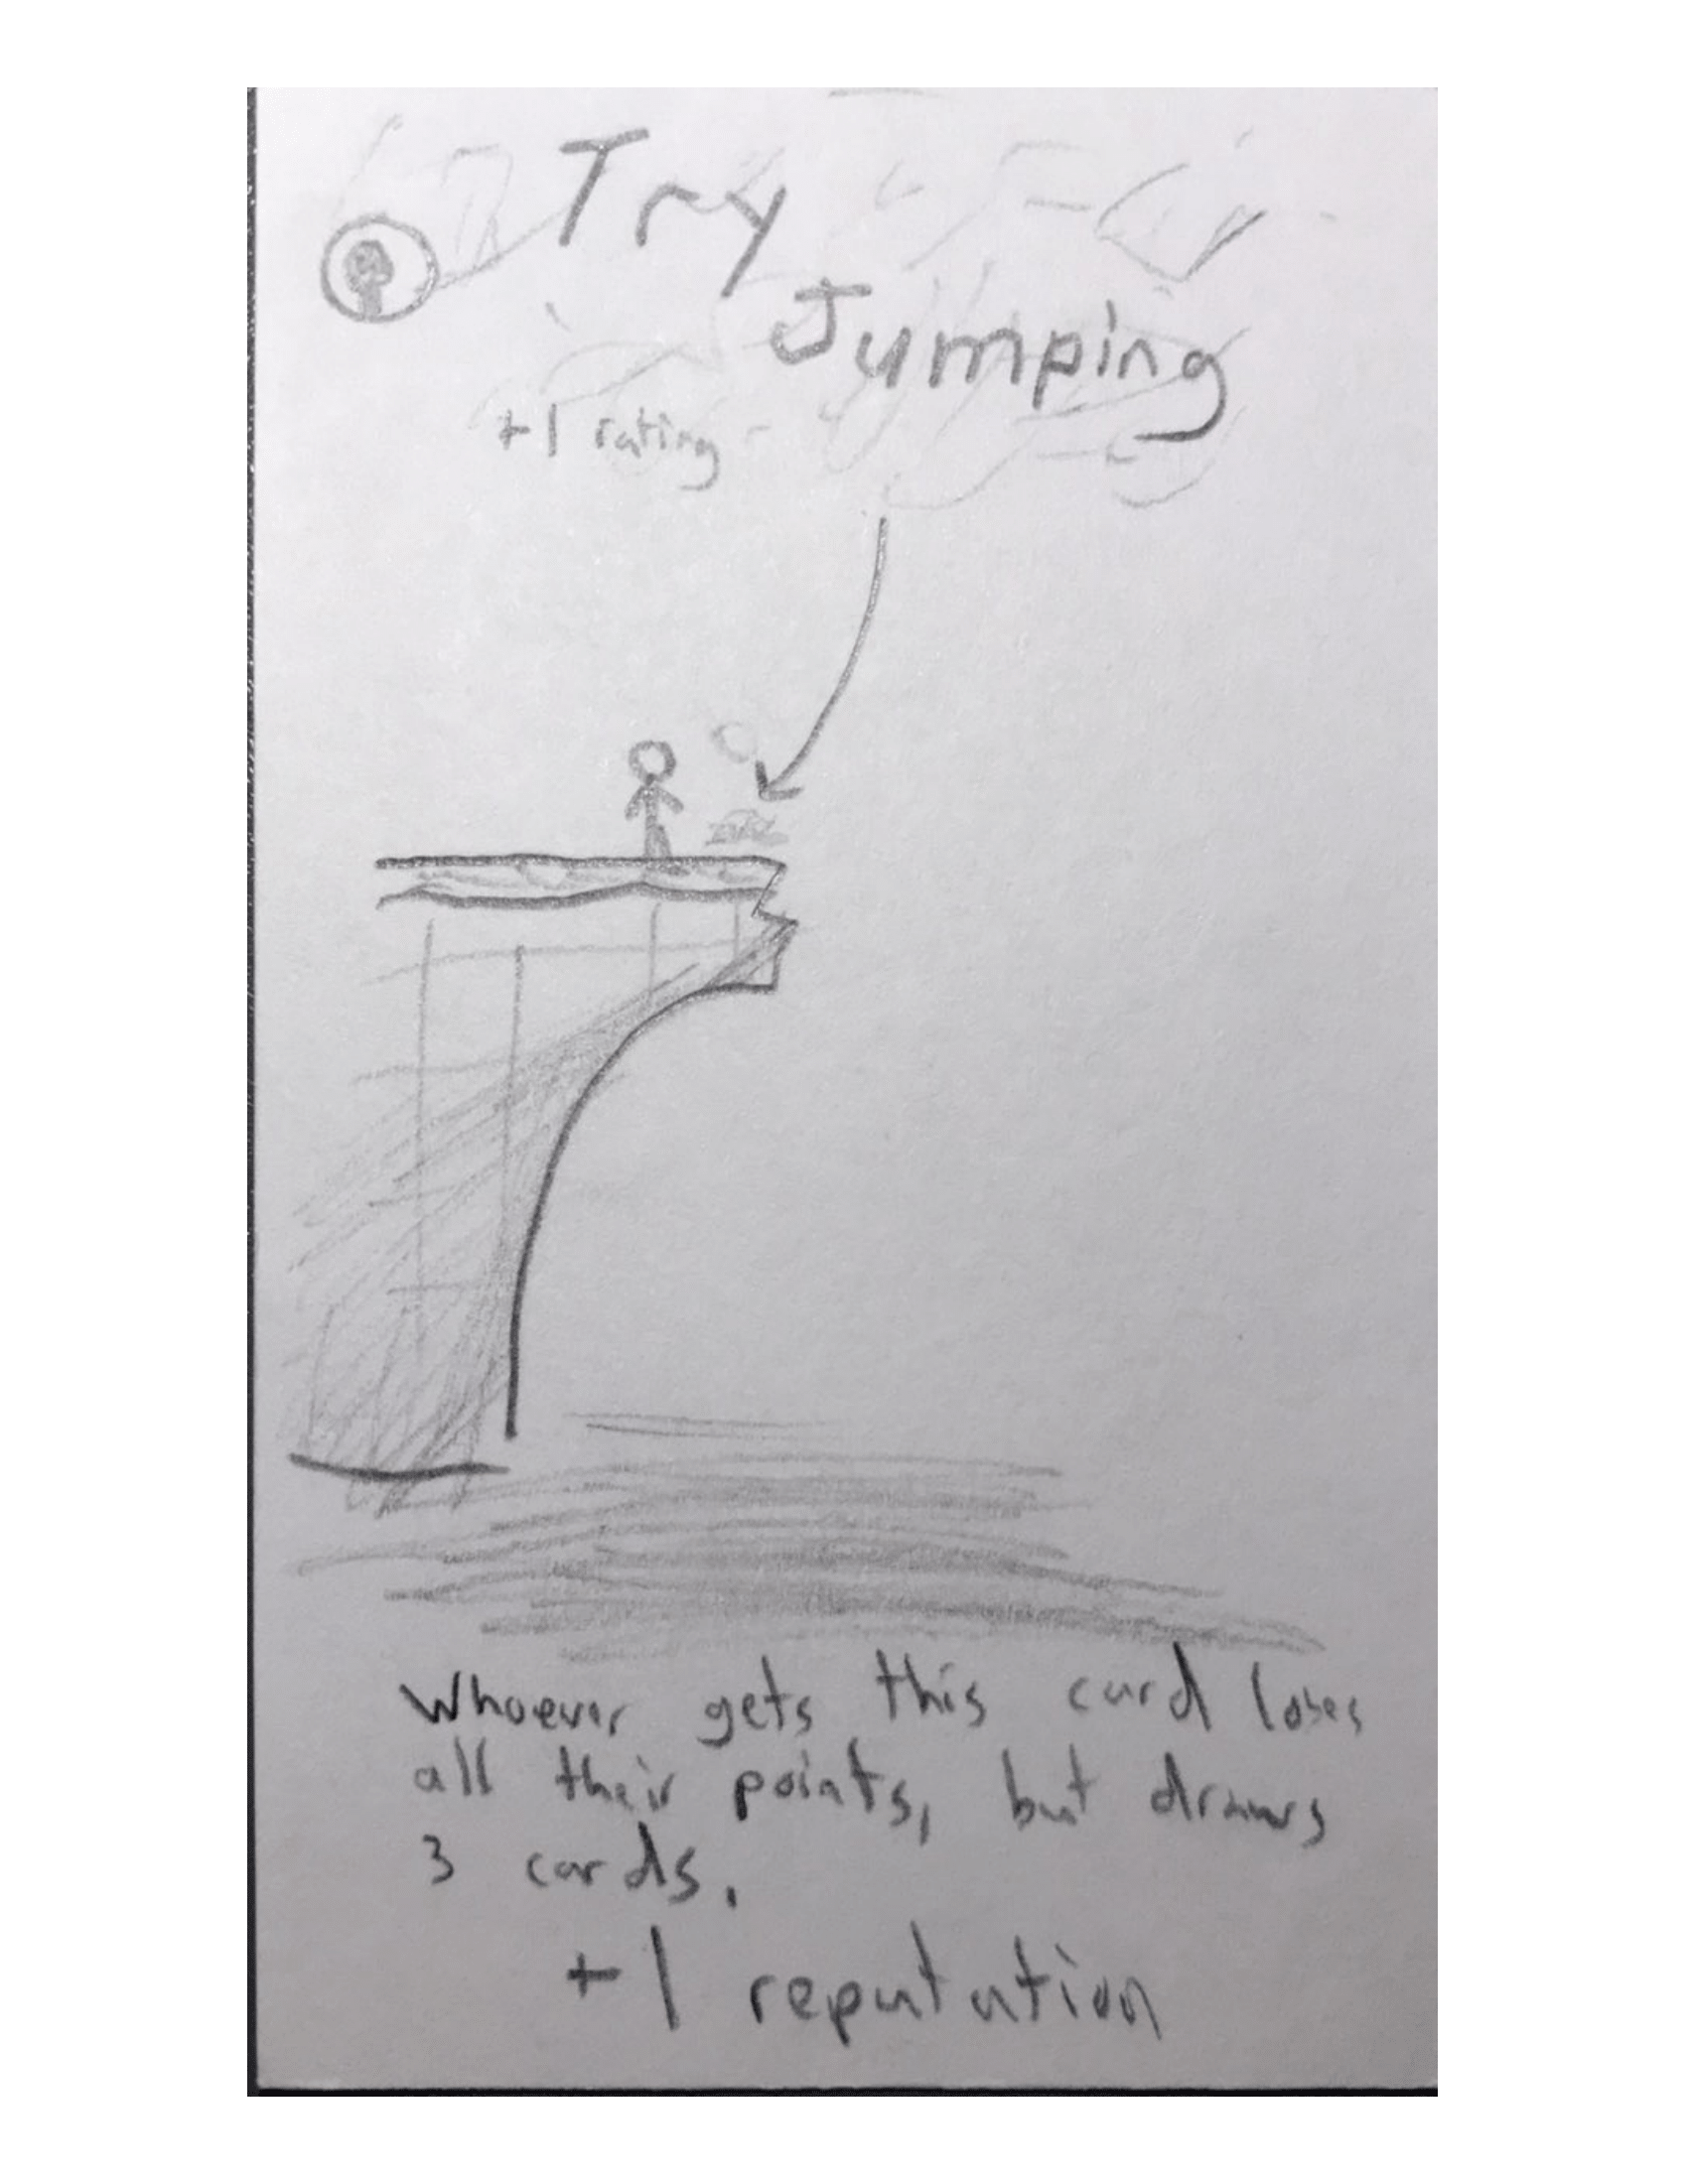 Try
Jumping
+1 rating
Whoever gets this card loses
all their points, but draws
3 cards.
+1 reputation